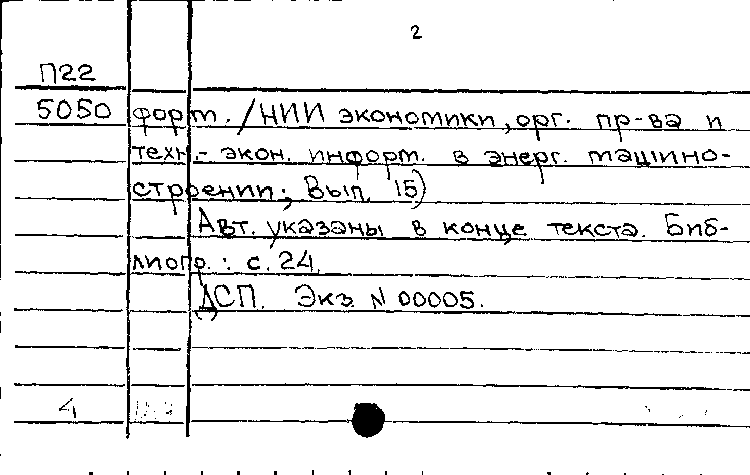 2
П22
5050 форт. / НИИ экономики, орг. пр-ва и
техн.- экон. информ. в энерг. машино-
строении; Вып. 15)
Авт. указаны в конце текста. Биб-
лиогр.: с. 24.
ДСП. Экз. N 00005.
4